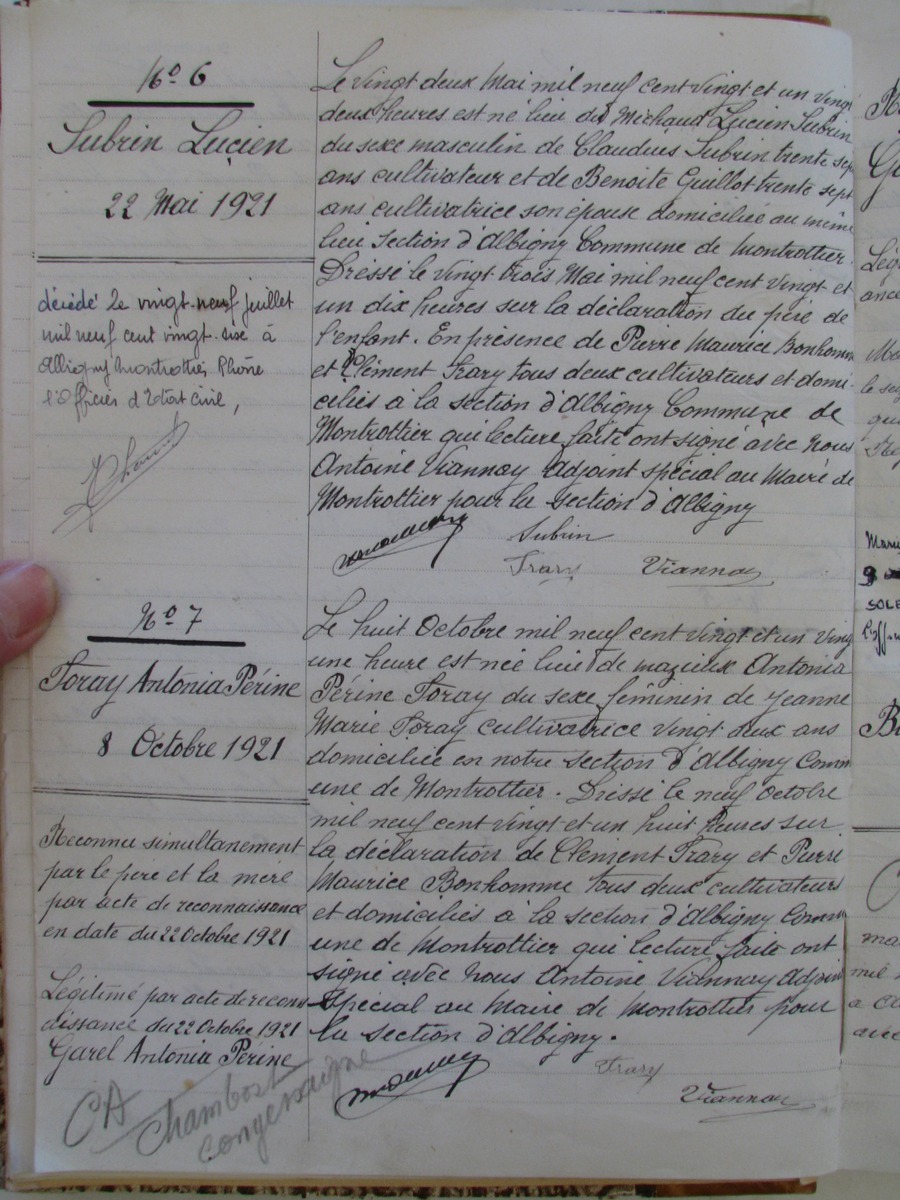 No 6
Subrin Lucien
22 Mai 1921
décédé le vingt-neuf juillet
mil neuf cent vingt-six à
Albigny Montrottier Rhône
l'Officier d'Etat Civil,
Le vingt deux Mai mil neuf cent vingt et un vingt
deux heures est né lieu du Michaud Lucien Subrin
du sexe masculin de Claudius Subrin trente sept
ans cultivateur et de Benoite Guillot trente sept
ans cultivatrice son épouse domiciliée au même
lieu Section d'Albigny Commune de Montrottier.
Dressé le vingt trois Mai mil neuf cent vingt et
un dix heures sur la déclaration du père de
l'enfant. En présence de Pierre Maurice Bonhomm
et Clément Trary tous deux cultivateurs et domi-
ciliés à la section d'Albigny Commune de
Montrottier qui lecture faite ont signé avec Nous
Antoine Viannay adjoint spécial au Maire de
Montrottier pour la section d'Albigny
Subrin
Trary Viannay
No 7
Foray Antonia Périne
8 Octobre 1921
Reconnu simultanement
par le père et la mère
par acte de reconnaissance
en date du 22 Octobre 1921
Légitimé par acte de reconn
aissance du 22 Octobre 1921
Garel Antonia Périne
CA Chambost
Longessaigne
Le huit Octobre mil neuf cent vingt et un ving
une heure est née lieu de mazieux Antonia
Périne Foray du sexe féminin de Jeanne
Marie Foray cultivatrice vingt deux ans
domiciliée en notre section d'Albigny Comm
une de Montrottier. Dressé le neuf Octobre
mil neuf cent vingt et un huit heures sur
la déclaration de Clément Trary et Pierre
Maurice Bonhomme tous deux cultivateurs
et domiciliés à la section d'Albigny Comm
une de Montrottier qui lecture faite ont
signé avec Nous Antoine Viannay Adjoint
Spécial au Maire de Montrottier pour
la section d'Albigny.
Trary
Viannay